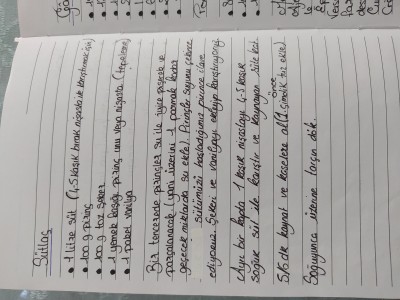 Sütlaç
• 1 litre süt (4,5 kaşık bırak nişasta ile karıştırmak için)
• 100 g pirinç
• 200 g toz şeker
• 1 yemek kaşığı pirinç unu veya nişasta (tepeleme)
• 1 paket vanilya
Bir tencerede pirinçler su ile iyice pişecek ve
parçalanacak (yani üzerini 1 parmak kadar
geçecek miktarda su ekle). Pirinçler suyunu çekince
sütümüzü haşladığımız pirince ilave
ediyoruz. Şekeri ve vanilyayı ekleyip karıştırıyoruz.
Ayrı bir kapta 1 kaşık nişastayı 4-5 kaşık
soğuk süt ile karıştır ve kaynayan süte kat.
önce
5,6 dk kaynat ve kaselere al (1 çimdik tuz ekle)
Soğuyunca üzerine tarçın dök.